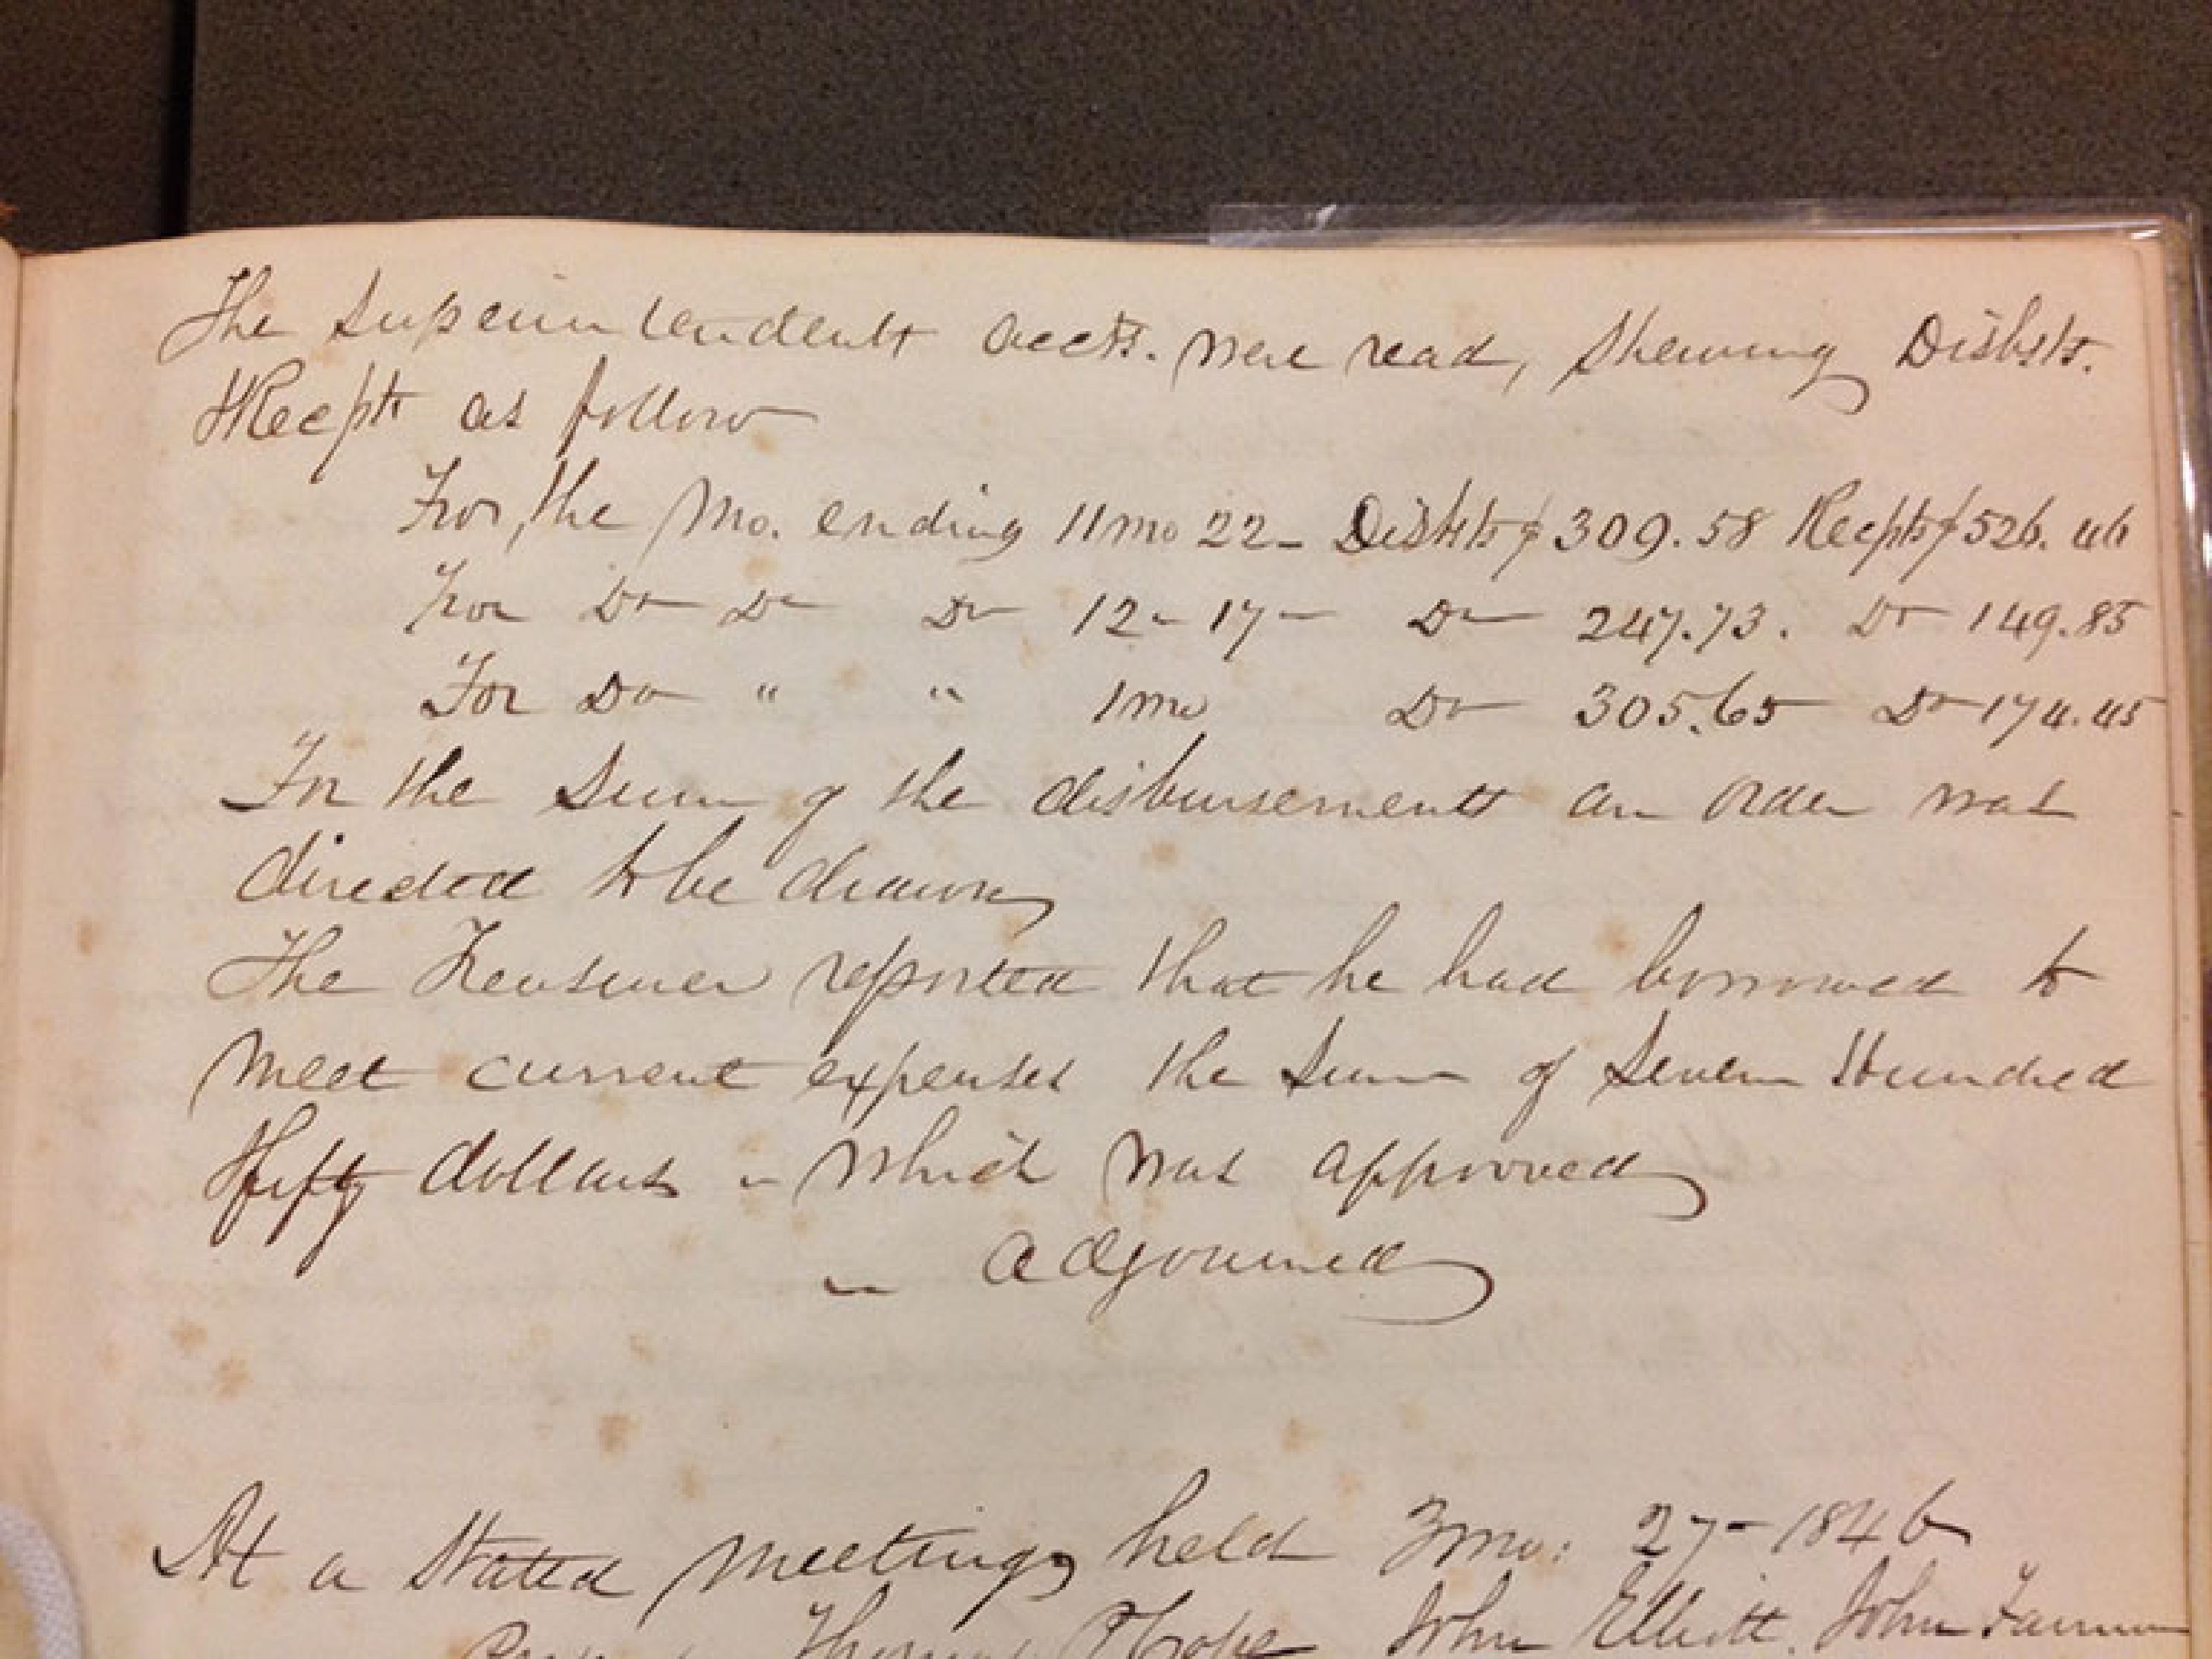 The Superintendents accts. were read, shewing Disbsts.
& Recpts as follow
For the Mo. ending 11mo 22 - Disbsts $ 309.58 Recpts $ 526.46
For Do Do Do 12 - 17 - Do 247.73. Do 149.85
For Do " " 1mo Do 305.65 Do 174.45
For the Sum of the disbursements an order was
directed to be drawn
The Treasurer reported that he had borrowed to
meet current expenses the Sum of Seven Hundred
& fifty dollars - which was approved
- Adjourned
At a Stated Meeting held 3mo: 27 - 1846
Thomas P Cope John Elliott. John Farnum